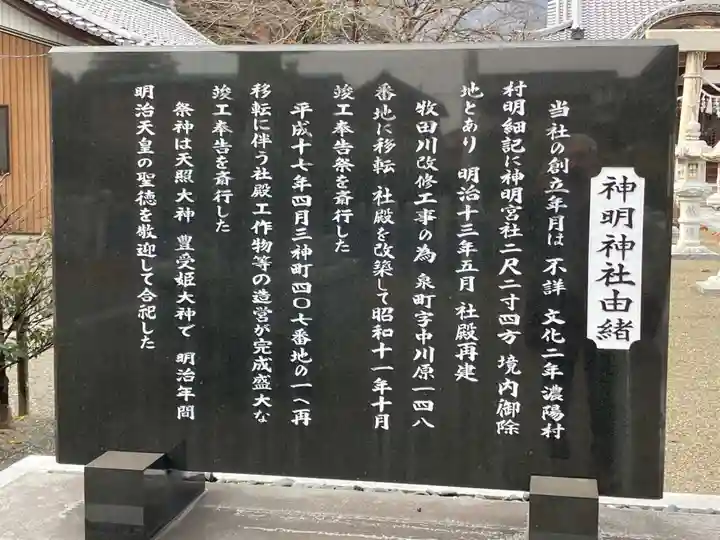 神明神社由緒
当社の創立年月は 不詳 文化二年濃陽村
村明細記に神明宮社二尺二寸四方 境内御除
地とあり 明治十三年五月 社殿再建
牧田川改修工事の為 泉町字中川原一四八
番地に移転 社殿を改築して昭和十一年十月
竣工奉告祭を斎行した
平成十七年四月三神町四〇七番地の一へ再
移転に伴う社殿工作物等の造営が完成盛大な
竣工奉告を斎行した
祭神は天照大神 豊受姫大神で 明治年間
明治天皇の聖徳を敬迎して合祀した